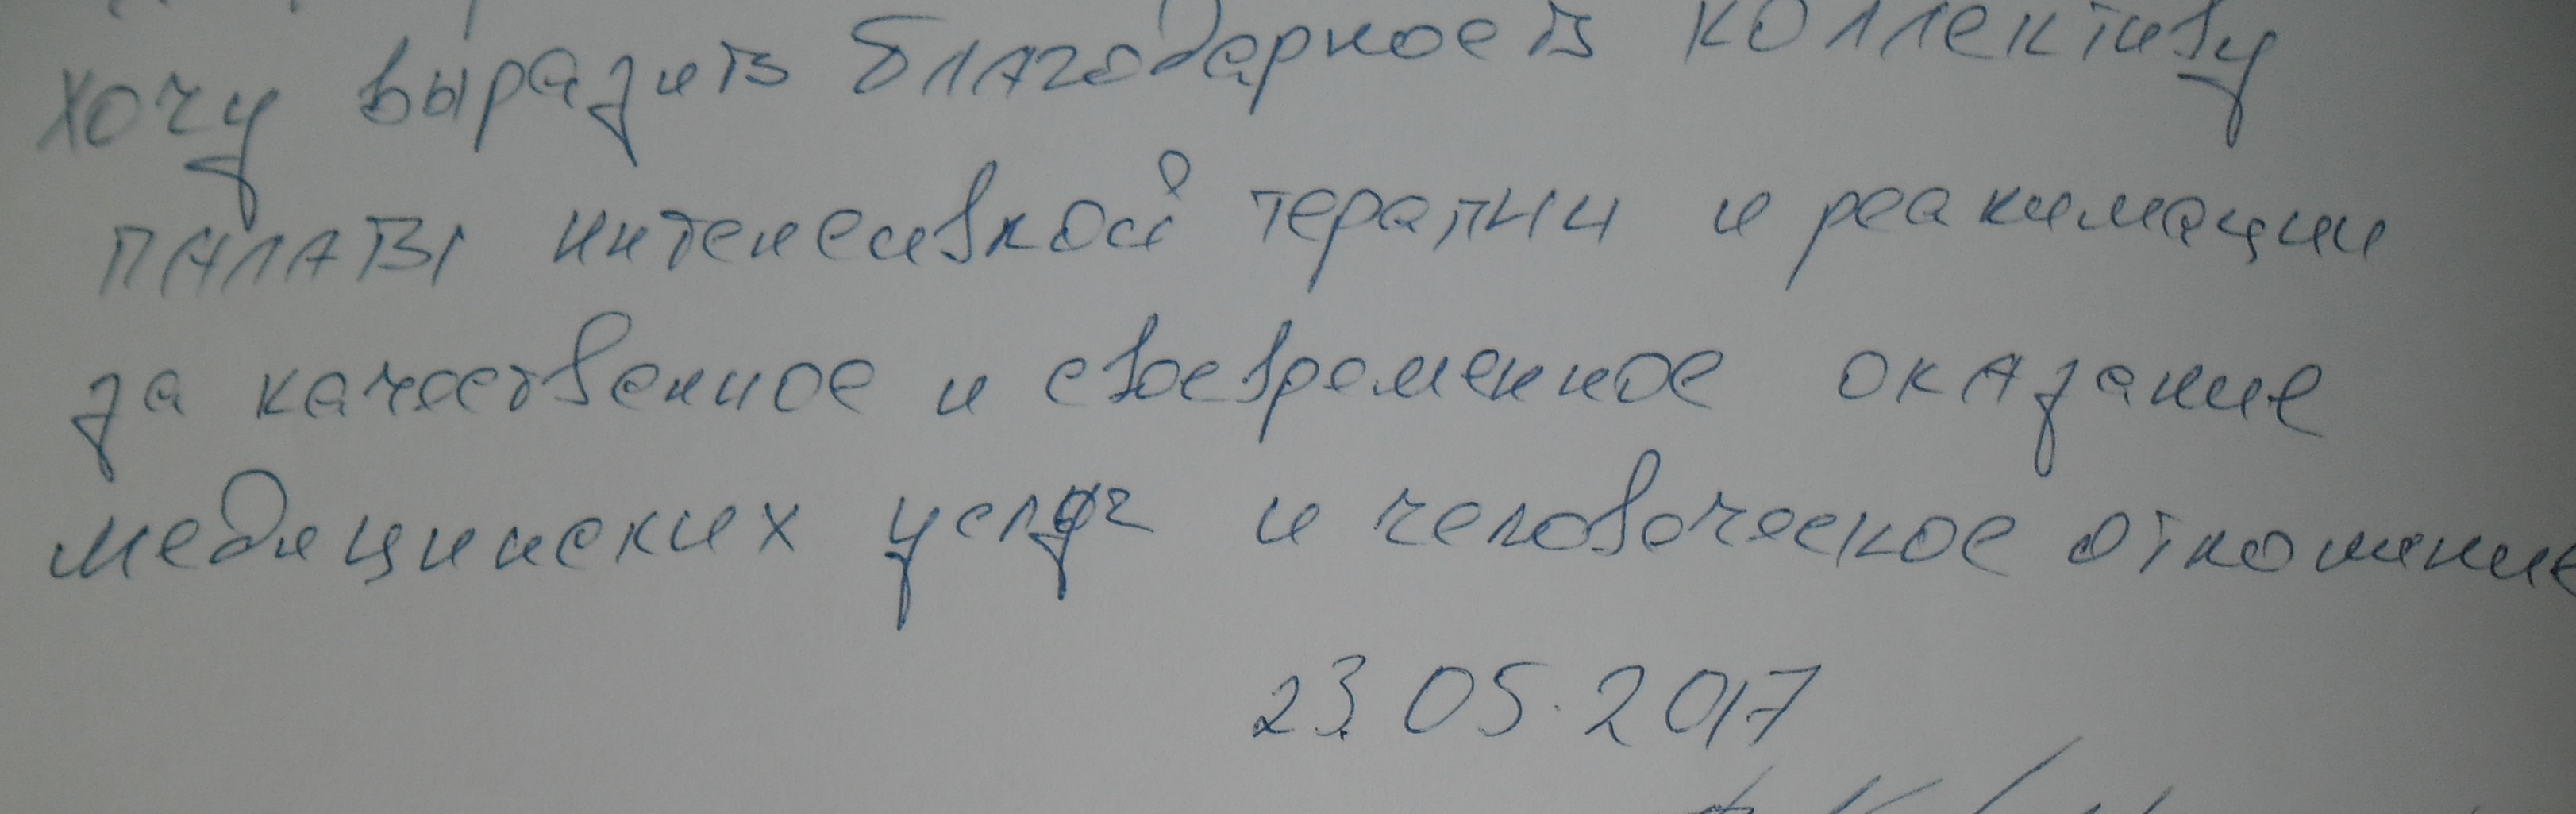 Хочу выразить благодарность коллективу
палаты интенсивной терапии и реанимации
за качественное и своевременное оказание
медицинских услуг и человеческое отношение
23.05.2017